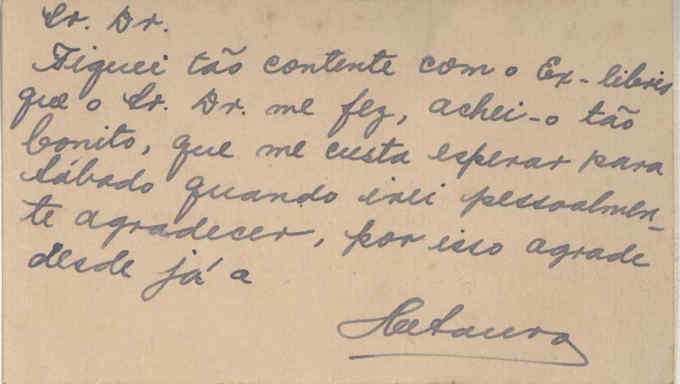 Sr. Dr.
Fiquei tão contente com o Ex-libris
que o Sr. Dr. me fez, achei-o tão
bonito, que me custa esperar para
sábado quando irei pessoalmen-
te agradecer, por isso agrade
desde já a